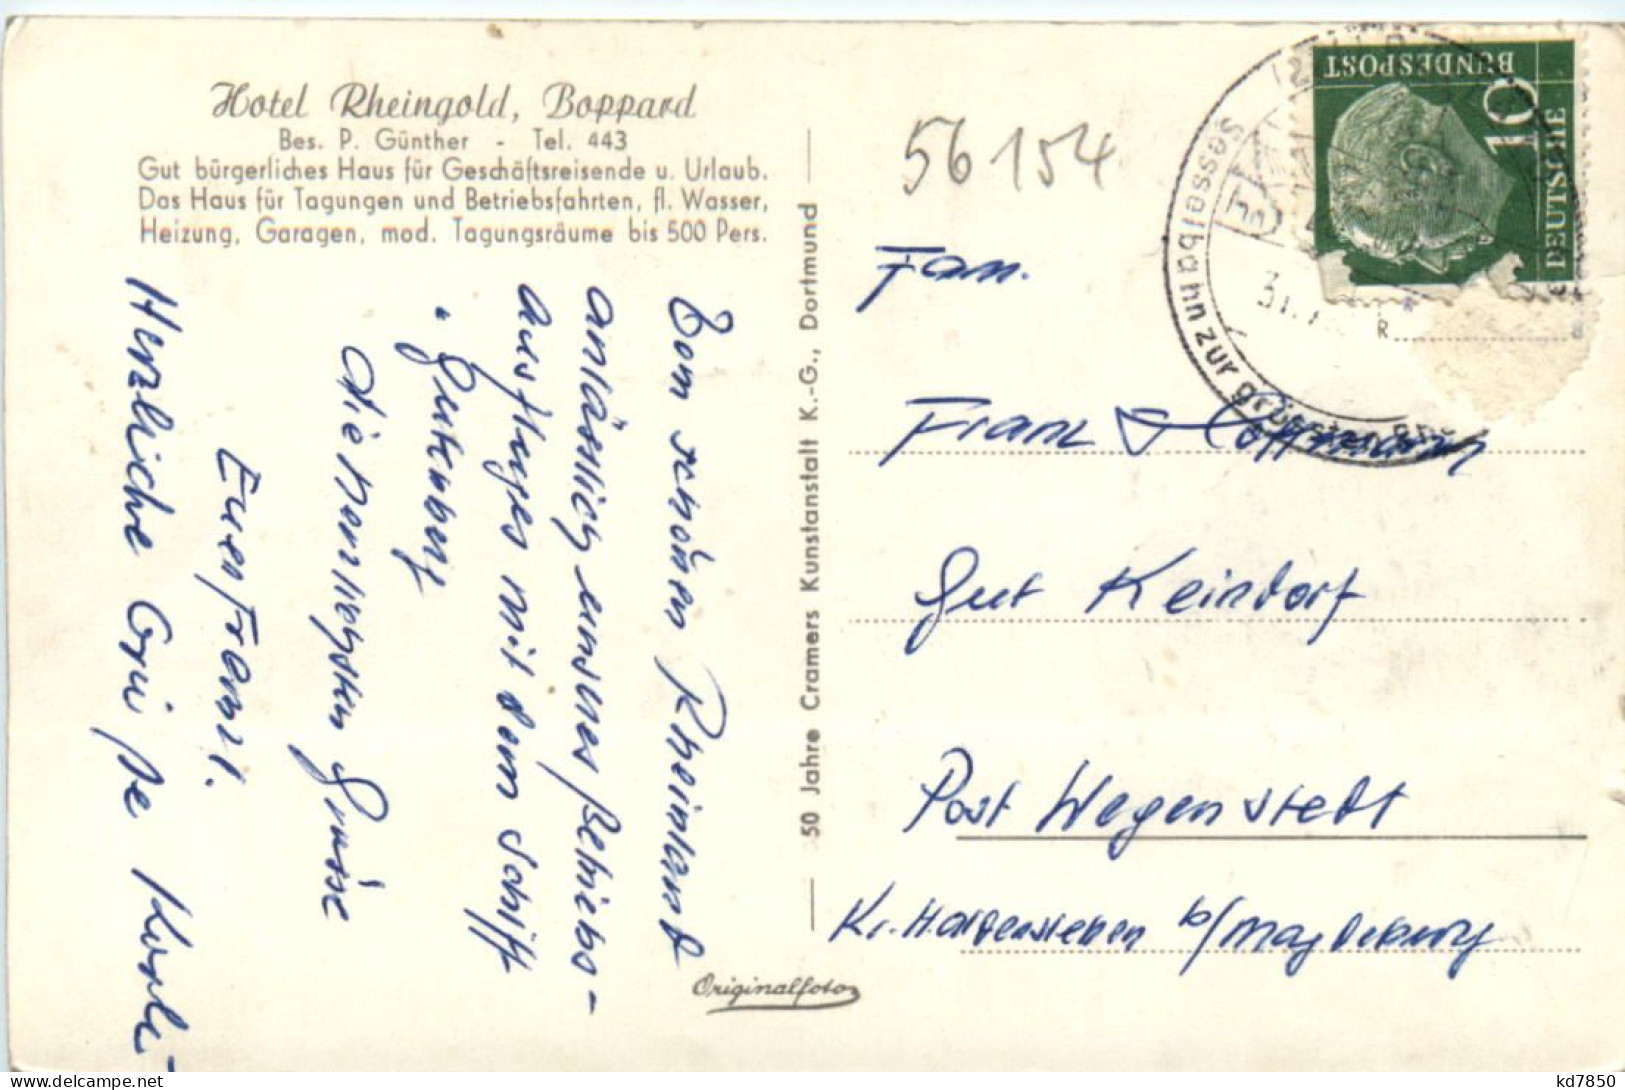 Hotel Rheingold, Boppard
Bes. P. Günther - Tel. 443
Gut bürgerliches Haus für Geschäftsreisende u. Urlaub.
Das Haus für Tagungen und Betriebsfahrten, fl. Wasser,
Heizung, Garagen, mod. Tagungsräume bis 500 Pers.
Vom schönen Rheinland
anlässlich unseres Betriebs-
ausfluges mit dem Schiff
"Gutenberg"
die herzlichsten Grüsse
Euer Franzl.
Herzliche
50 Jahre Cramers Kunstanstalt K.-G., Dortmund
Originalfoto
56154
DEUTSCHE
BUNDESPOST
10
Sesselbahn zur grössten
31.
Fam.
Franz Hoffmann
Gut Keindorf
Post Wegenstedt
Kr. Haldensleben b/Magdeburg
kd7850